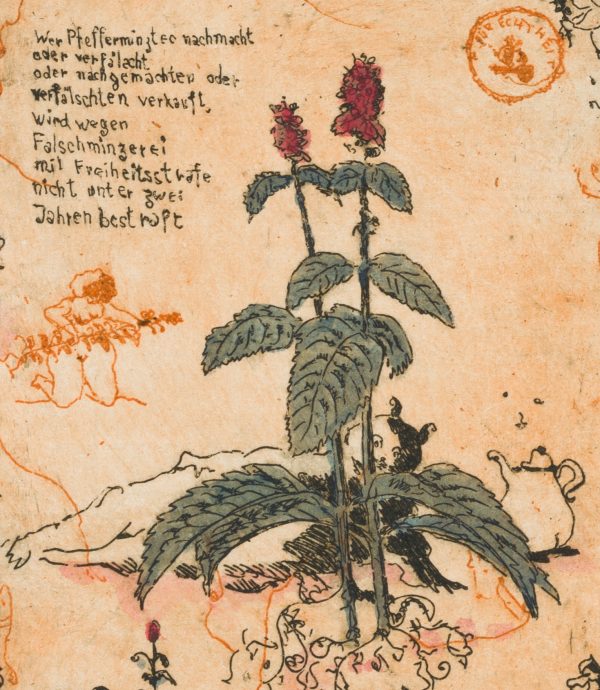 Wer Pfefferminztee nachmacht
oder verfälscht
oder nachgemachten oder
verfälschten verkauft,
wird wegen
Falschminzerei
mit Freiheitsstrafe
nicht unter zwei
Jahren bestraft
FÜR ECHTHEIT